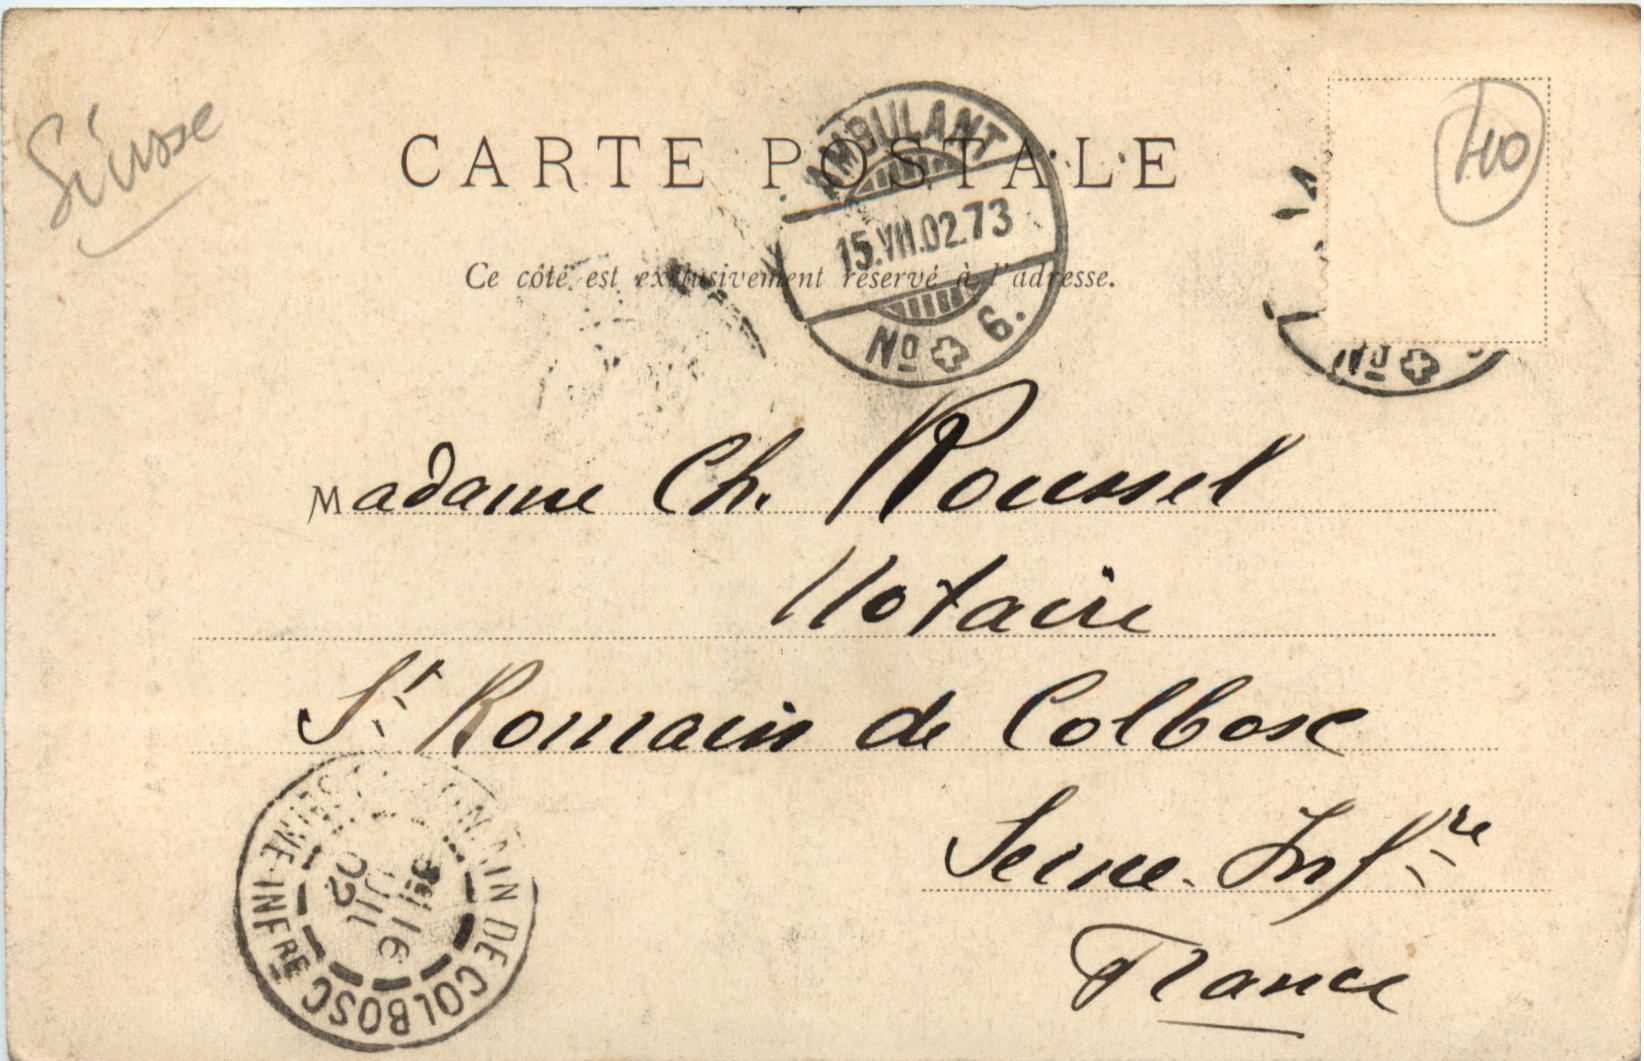 Suisse
CARTE POSTALE
Ce côté est exclusivement réservé à l'adresse.
AMBULANT
15.VII.02.73
No 6.
No
Madame Ch. Roussel
Notaire
St Romain de Colbosc
Seine-Infre
France
MAIN DE COLBOSC
SEINE-INFRE
16
JUIL
02